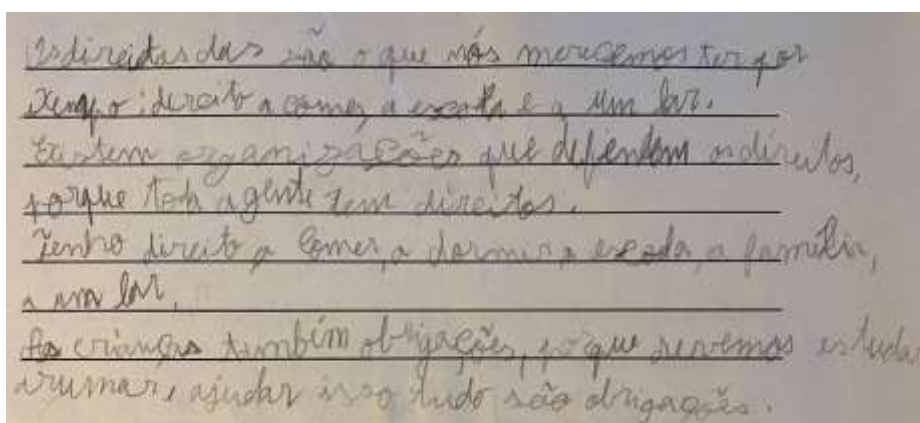 Os direitos das são o que nós merecemos ter por
xempo: direito a comer, a escola e a um lar.
Existem organizações que defendem os direitos,
porque toda agente tem direitos.
Tenho direito a comer, a dormir, a escola, a família,
a um lar,
As crianças também obrigações, porque devemos estudar
arumar, ajudar isso tudo são obrigações.